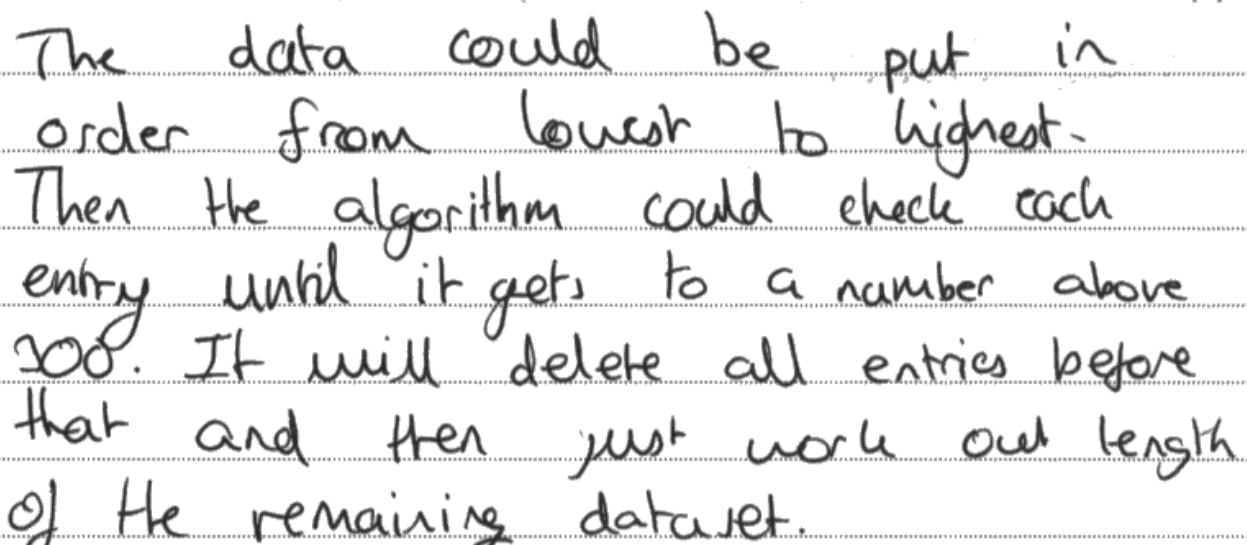 The data could be put in
order from lowest to highest.
Then the algorithm could check each
entry until it gets to a number above
300. It will delete all entries before
that and then just work out length
of the remaining dataset.